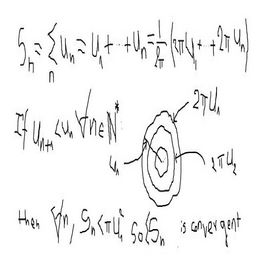 Sₙ = ∑ₙ uₙ = u₁ + ··· + uₙ = 1/2π (2πu₁ + ··· + 2πuₙ)
If uₙ₊₁ < uₙ ∀n∈ℕ*
2πu₁
u₁
2πu₂
then ∀n, Sₙ < πu₁² so (Sₙ is convergent